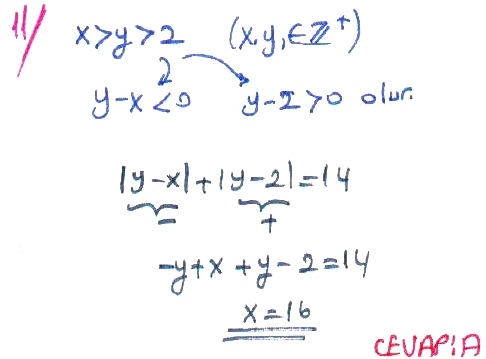 11/ x>y>2 (x,y,∈Z⁺)
y-x<0 y-2>0 olur.
|y-x|+|y-2|=14
- +
-y+x+y-2=14
x=16
CEVAP:A